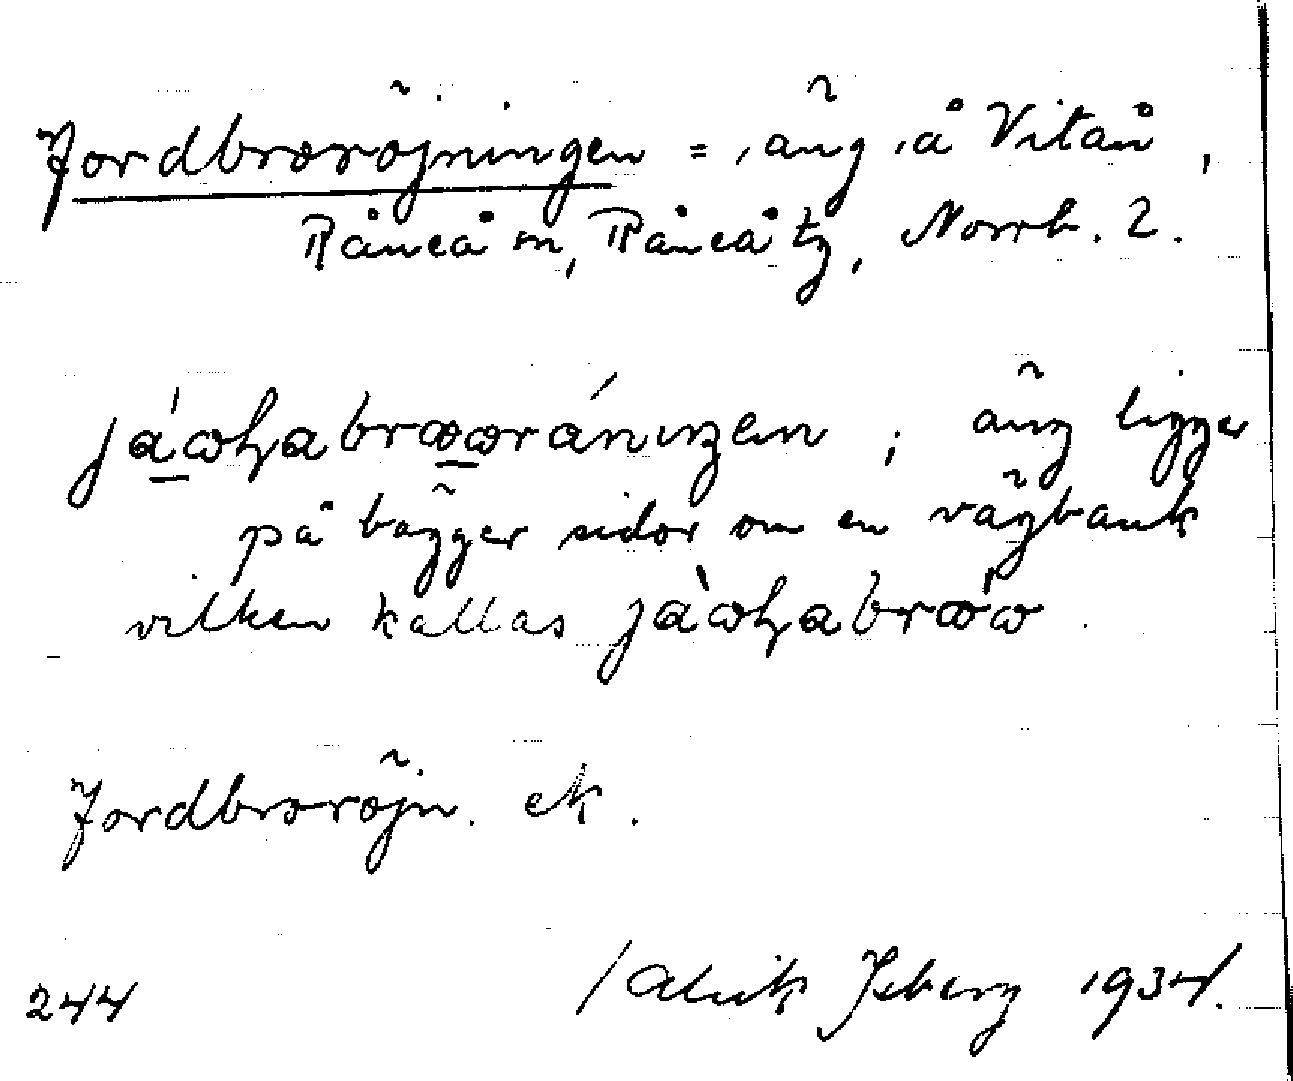 Jordbroröjningen = , äng , å Vitån ,
Råneå sn, Råneå tg, Norrb. 2.
äng ligger
på bägger sidor om en vägbank
vilken kallas
Jordbroröjn. ek.
244 / Isberg 1934/.